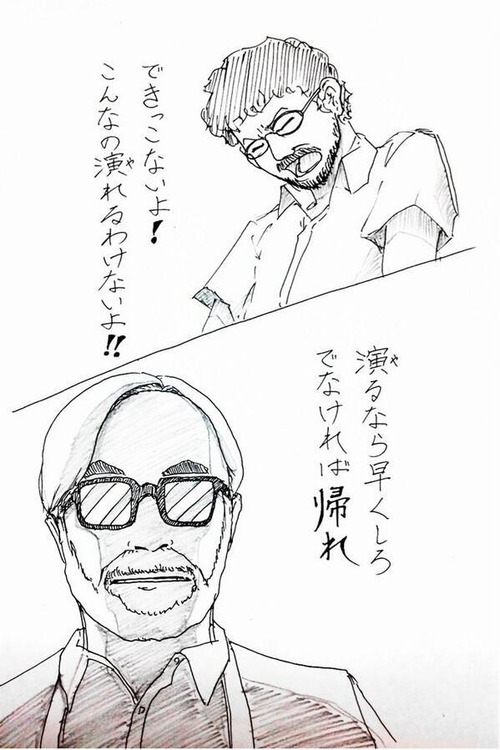 できっこないよ!
こんなの演れるわけないよ!!
や
演るなら早くしろ
や
でなければ帰れ